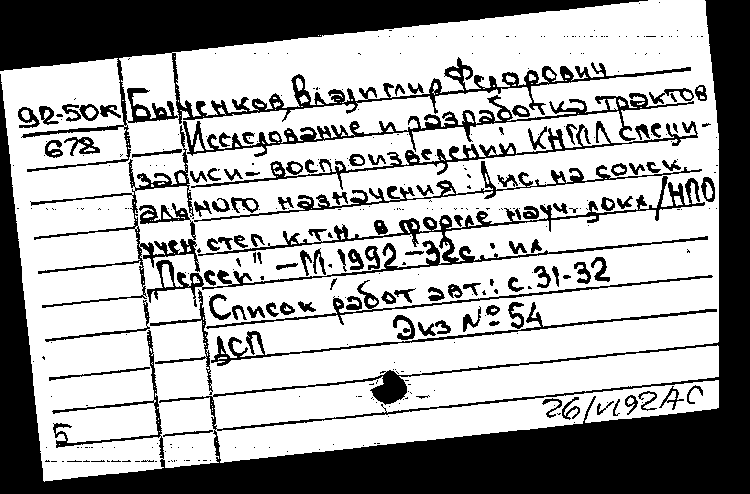 92-50к
678
Быченков, Владимир Федорович
Исследование и разработка трактов
записи-воспроизведений КНМЛ специ-
ального назначения: Дис. на соиск.
учен. степ. к.т.н. в форме науч. докл. / НПО
"Персей". - М. 1992. - 32с.: ил.
" "
Список работ авт.: с. 31-32
ДСП Экз № 54
26/VI 92 АС
Б